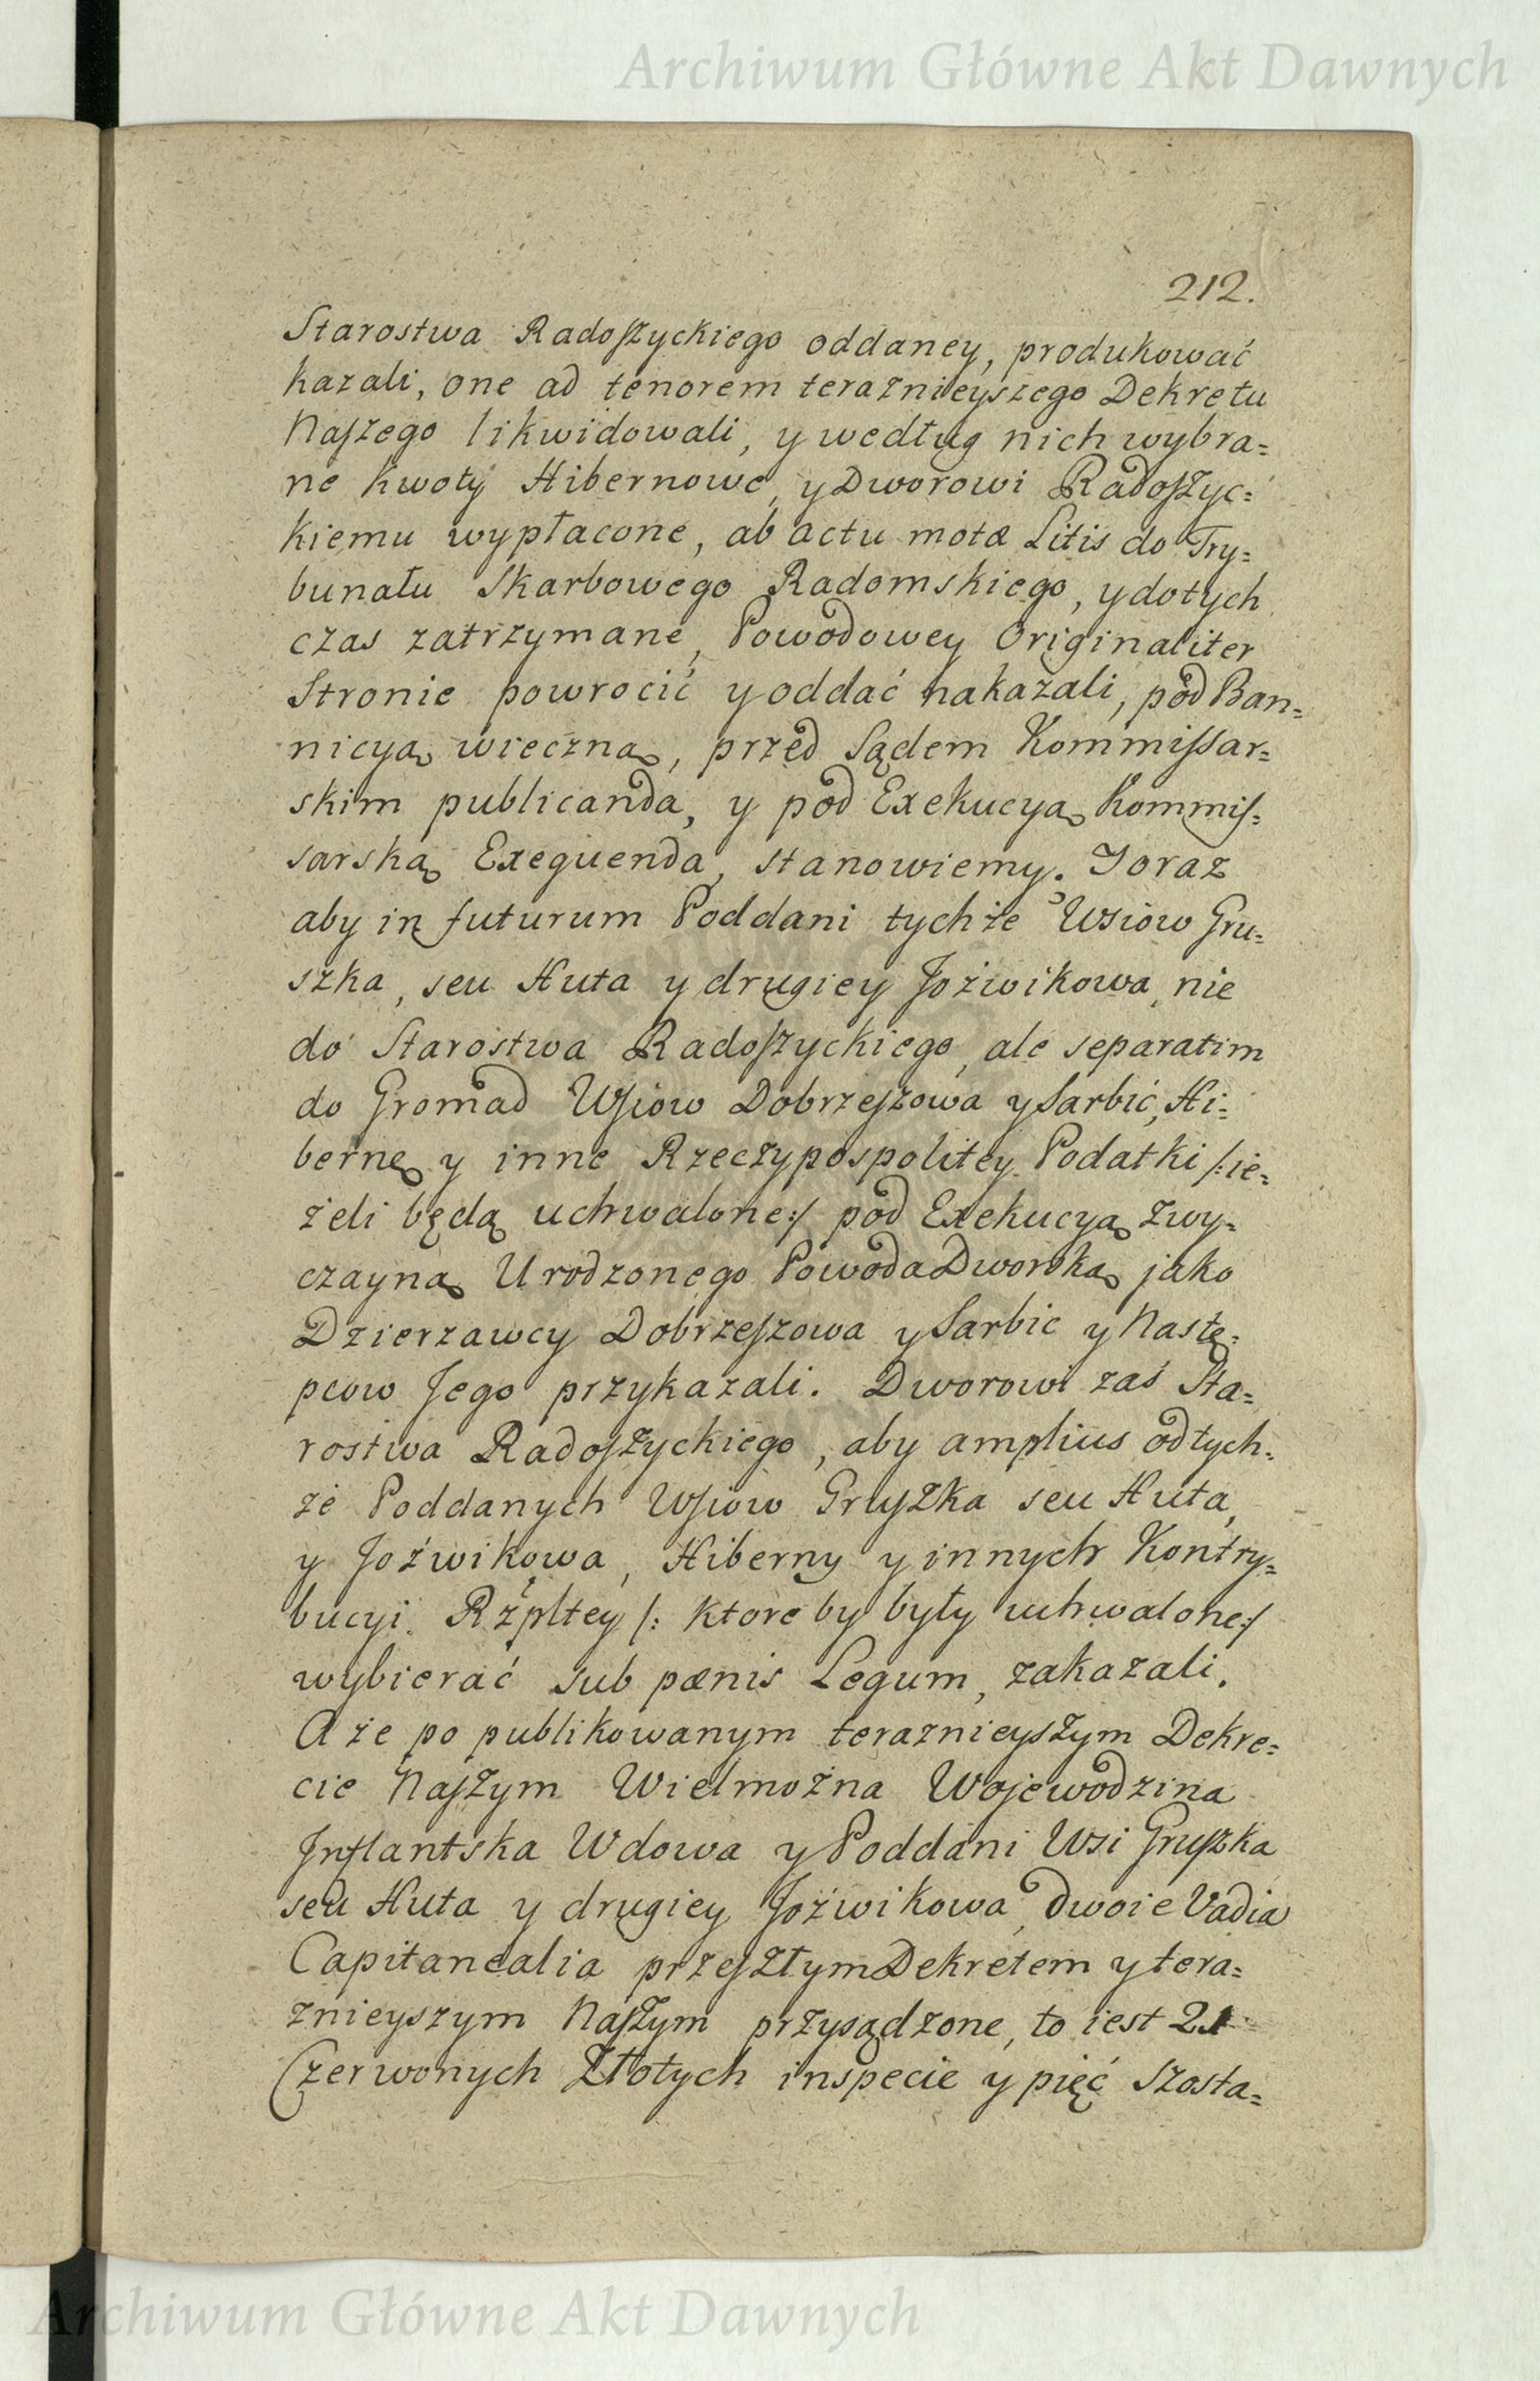 Archiwum Główne Akt Dawnych
212.
Starostwa Radoſzyckiego oddaney, produkować
kazali, one ad tenorem teraznieyszego Dekretu
Naſzego likwidowali, y według nich wybra=
ne kwoty Hibernowe, y Dworowi Radoſzyc=
kiemu wypłacone, ab actu motæ Litis do Try=
bunału Skarbowego Radomskiego, y dotych
czas zatrzymane, Powodowey Originaliter
Stronie powrocić y oddać nakazali, pod Ban=
nicyą wieczną, przed Sądem Kommiſsar=
skim publicanda, y pod Exekucyą Kommiſ=
sarską Exequenda, stanowiemy. Y oraz
aby in futurum Poddani tychże Wsiow Gru=
szka, seu Huta y drugiey Jożwikowa, nie
do Starostwa Radoſzyckiego, ale separatim
do Gromad Wſiow Dobrzeſzowa y Sarbic, Hi=
bernę y inne Rzeczypospolitey Podatki /:ie=
żeli będą uchwalone:/ pod Exekucyą zwy=
czayną Urodzonego Powoda Dworską jako
Dzierzawcy Dobrzeſzowa y Sarbic y Nastę=
pcow Jego przykazali. Dworowi zaś Sta=
rostwa Radoſzyckiego, aby amplius od tych=
że Poddanych Wſiow Gruſzka seu Huta,
y Jożwikowa, Hiberny y innych Kontry=
bucyi Rzpltey /: ktore by były uchwalone:/
wybierać sub pænis Legum, zakazali.
A że po publikowanym teraznieyszym Dekre=
cie Naſzym Wielmożna Wojewodzina
Inflantska Wdowa y Poddani Wsi Gruſzka
seu Huta y drugiey Jożwikowa, dwoie Vadia
Capitanealia przeſzłym Dekretem y tera=
znieyszym Naſzym przysądzone, to iest 21
Czerwonych Złotych inspecie y pięć Szosta=
Archiwum Główne Akt Dawnych